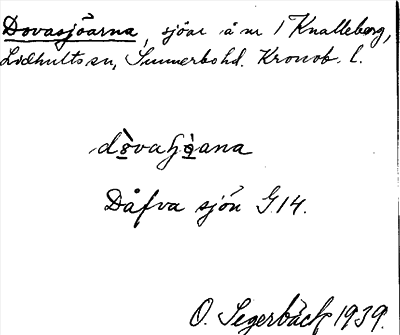 Dovasjöarna, sjöar å nr 1 Knalleberg,
Lidhults sn, Sunnerbo hd. Kronob. l.
dòvaʃö̀ana
Dåfva sjön G14.
O. Segerbäck 1939.